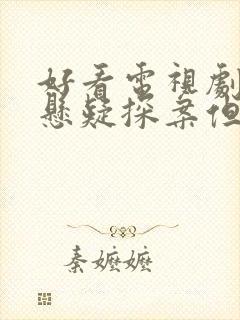 好看電視劇
懸疑探案但
秦嬤嬤